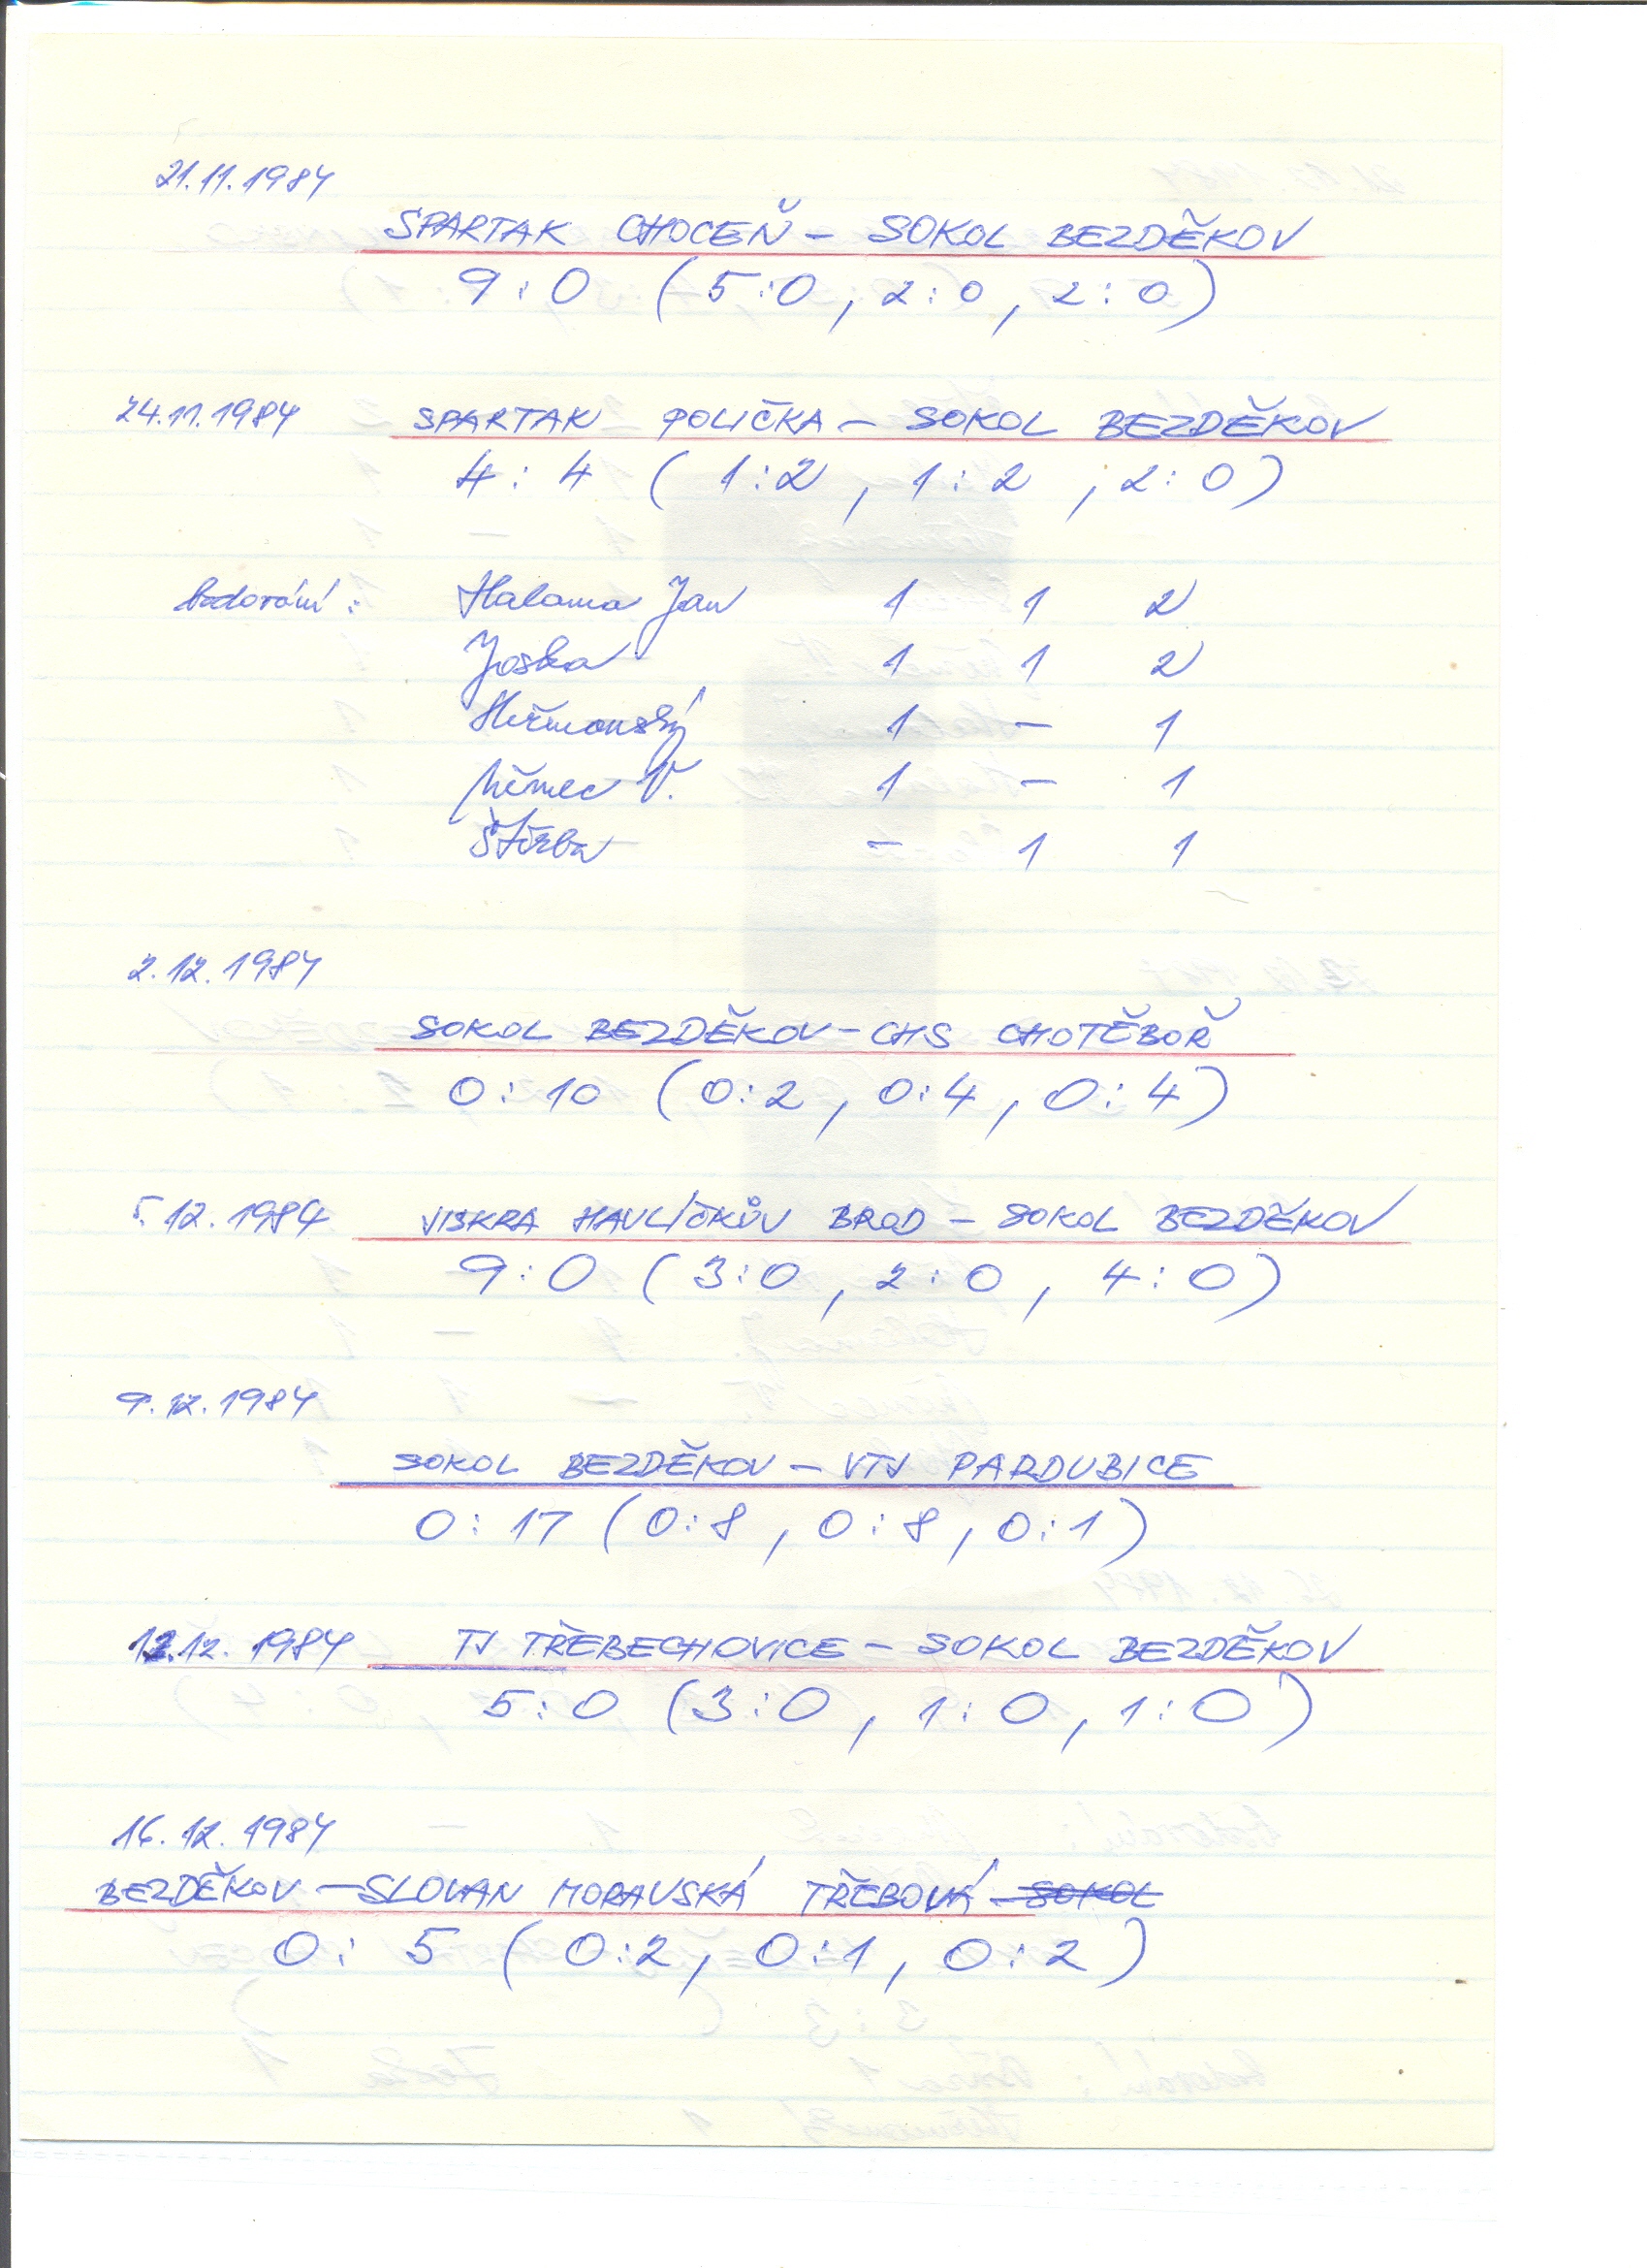 21.11.1984
SPARTAK CHOCEŇ – SOKOL BEZDĚKOV
9:0 (5:0, 2:0, 2:0)
24.11.1984 SPARTAK POLIČKA – SOKOL BEZDĚKOV
4:4 (1:2, 1:2, 2:0)
bodování: Halama Jan 1 1 2
Joska 1 1 2
Heřmanský 1 – 1
Němec V. 1 – 1
Štěrba – 1 1
2.12.1984
SOKOL BEZDĚKOV – CHS CHOTĚBOŘ
0:10 (0:2, 0:4, 0:4)
5.12.1984 JISKRA HAVLÍČKŮV BROD – SOKOL BEZDĚKOV
9:0 (3:0, 2:0, 4:0)
9.12.1984
SOKOL BEZDĚKOV – VTJ PARDUBICE
0:17 (0:8, 0:8, 0:1)
12.12.1984 TJ TŘEBECHOVICE – SOKOL BEZDĚKOV
5:0 (3:0, 1:0, 1:0)
16.12.1984
BEZDĚKOV – SLOVAN MORAVSKÁ TŘEBOVÁ – SOKOL
0:5 (0:2, 0:1, 0:2)